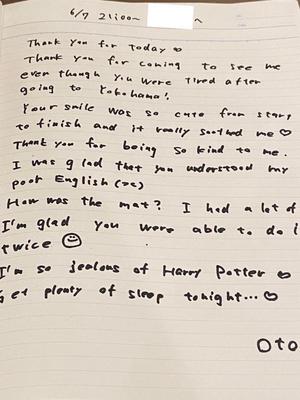 6/7 21:00~ へ
Thank you for today ♡
Thank you for coming to see me
even though you were tired after
going to Yokohama!
Your smile was so cute from start
to finish and it really soothed me ♡
Thank you for being so kind to me.
I was glad that you understood my
poor English
How was the mat? I had a lot of
I'm glad you were able to do i
twice ☺
I'm so jealous of Harry Potter ♡
Get plenty of sleep tonight... ♡
Oto